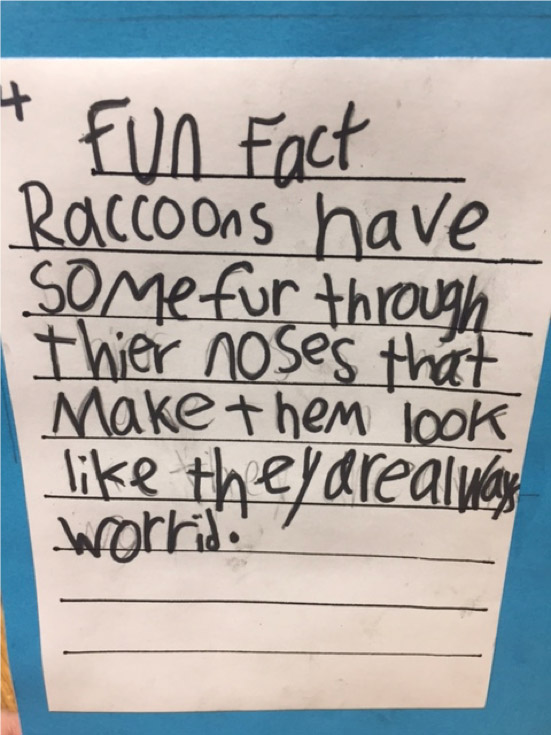 4
Fun Fact
Raccoons have
some fur through
thier noses that
Make them look
like they are always
worrid.